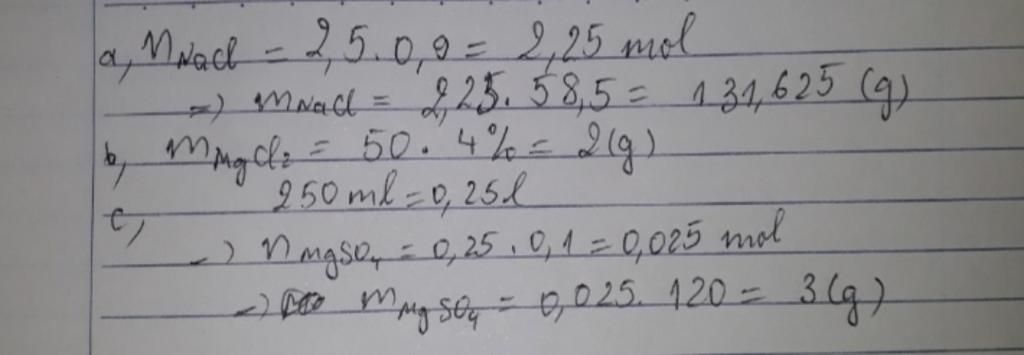 a, nNaCl = 2,5 . 0,9 = 2,25 mol
=) mNaCl = 2,25 . 58,5 = 131,625 (g)
b, mMgCl2 = 50 . 4% = 2(g)
c, 250 ml = 0,25l
=) nMgSO4 = 0,25 . 0,1 = 0,025 mol
=) mMgSO4 = 0,025 . 120 = 3(g)